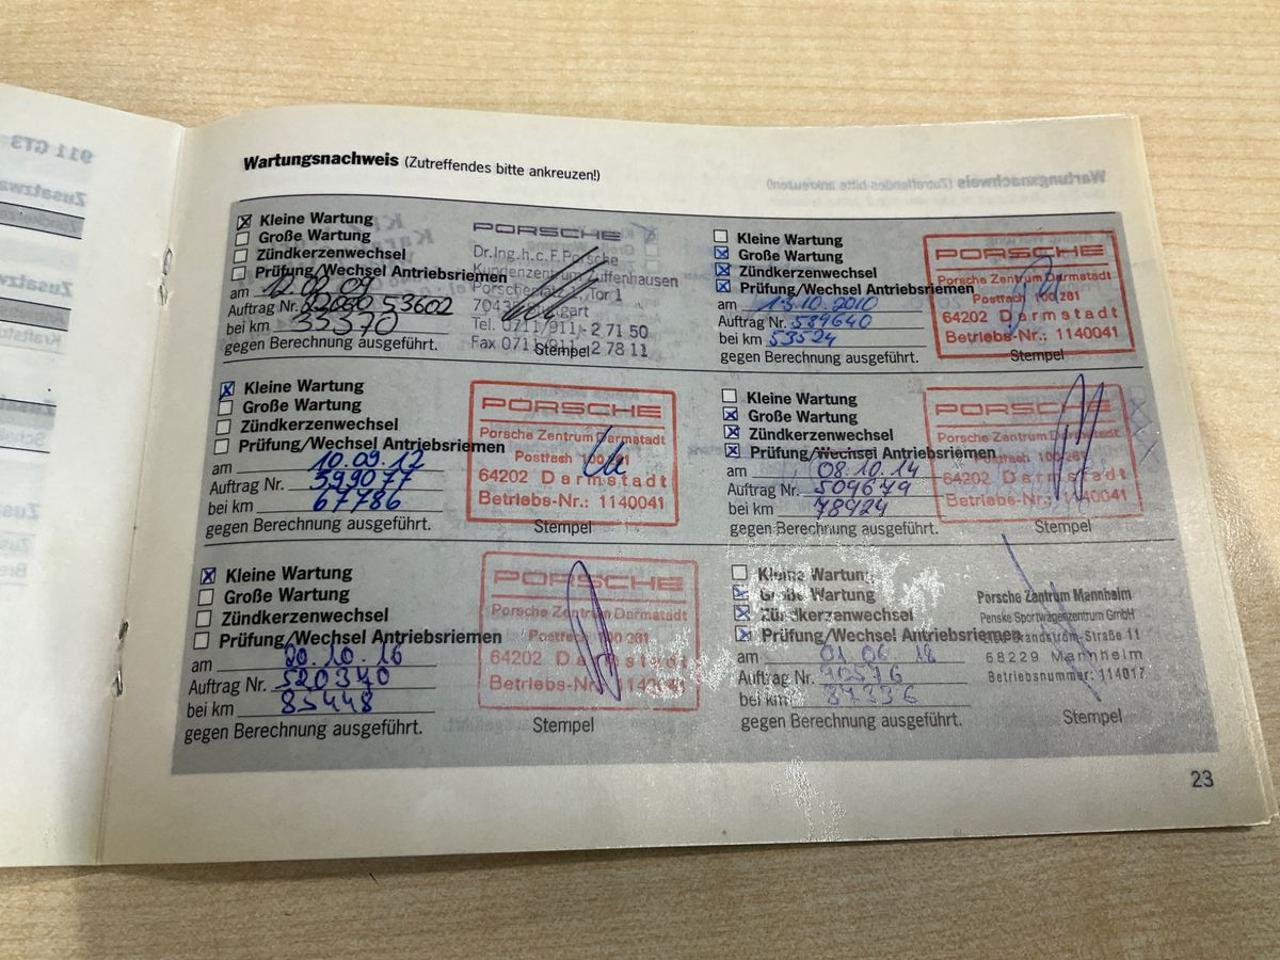 911 GT3
Wartungsnachweis (Zutreffendes bitte ankreuzen!)
Kleine Wartung
Große Wartung
Zündkerzenwechsel
Prüfung/Wechsel Antriebsriemen
am 12.02.09
Auftrag Nr. 53602
bei km 35570
gegen Berechnung ausgeführt.
PORSCHE
Dr.Ing.h.c.F.Porsche
Kundenzentrum Zuffenhausen
Tor 1
Tel. 0711/911-2 71 50
Fax 0711/911-2 78 11
Stempel
Kleine Wartung
Große Wartung
Zündkerzenwechsel
Prüfung/Wechsel Antriebsriemen
am 13.10.2010
Auftrag Nr. 589640
bei km 53524
gegen Berechnung ausgeführt.
PORSCHE
Porsche Zentrum Darmstadt
Postfach 100 261
64202 Darmstadt
Betriebs-Nr.: 1140041
Stempel
Kleine Wartung
Große Wartung
Zündkerzenwechsel
Prüfung/Wechsel Antriebsriemen
am 10.09.12
Auftrag Nr. 599077
bei km 67786
gegen Berechnung ausgeführt.
PORSCHE
Porsche Zentrum Darmstadt
Postfach 100 261
64202 Darmstadt
Betriebs-Nr.: 1140041
Stempel
Kleine Wartung
Große Wartung
Zündkerzenwechsel
Prüfung/Wechsel Antriebsriemen
am 08.10.14
Auftrag Nr. 509679
bei km 78924
gegen Berechnung ausgeführt.
PORSCHE
Porsche Zentrum Darmstadt
Postfach 100 261
64202 Darmstadt
Betriebs-Nr.: 1140041
Stempel
Kleine Wartung
Große Wartung
Zündkerzenwechsel
Prüfung/Wechsel Antriebsriemen
am 20.10.16
Auftrag Nr. 520340
bei km 85448
gegen Berechnung ausgeführt.
PORSCHE
Porsche Zentrum Darmstadt
Postfach 100 261
64202 Darmstadt
Betriebs-Nr. 1140041
Stempel
Kleine Wartung
Große Wartung
Zündkerzenwechsel
Prüfung/Wechsel Antriebsriemen
am 01.06.18
Auftrag Nr. 
bei km 87336
gegen Berechnung ausgeführt.
Porsche Zentrum Mannheim
Penske Sportwagenzentrum GmbH
Straße 11
68229 Mannheim
Betriebsnummer: 114017
Stempel
23